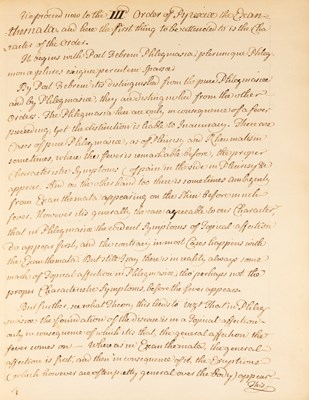 We proceed now to the III Order of Pyrexiæ the Exan-
themata and here the first thing to be attended to is the Cha-
racter of the Order.
It begins with Post Febrem Phlegmasiæ; plerumque Phleg-
mone plures exiguæ per cutem sparsæ.
By Post Febrem it is distinguished from the pure Phlegmasiæ
and By Phlegmasiæ, they are distinguished from the other
Orders. The Phlegmasiæ here are only in consequence of a fever
preceeding, yet the distinction is liable to Inaccuracy. There are
Cases of pure Phlegmasiæ, as of Pleurisy and Rheumatism
sometimes, where the fever is remarkable before the proper
characteristic Symptoms of pain in the side in Pleurisy &c
appear. And on the other hand too there is sometimes ambiguity
from Exanthemata appearing on the Skin before much
fever. However it is generally the case agreeable to our Character,
that in Phlegmasiæ the evident Symptoms of Topical affection
do appear first, and the contrary in most Cases happens with
the Exanthemata. But still I say, there is in reality always some
mark of Topical affection in Phlegmasiæ, tho perhaps not the
proper Characteristic Symptoms, before the fever appears.
But further, see what Theory this leads to viz. That in Phleg-
masiæ the foundation of the disease is in a Topical affection
only in consequence of which it is that the general affection the
fever comes on — whereas in Exanthemata, the general
affection is first, and then in consequence of it, the Eruptions
(which however are often pretty general over the body) appear
This